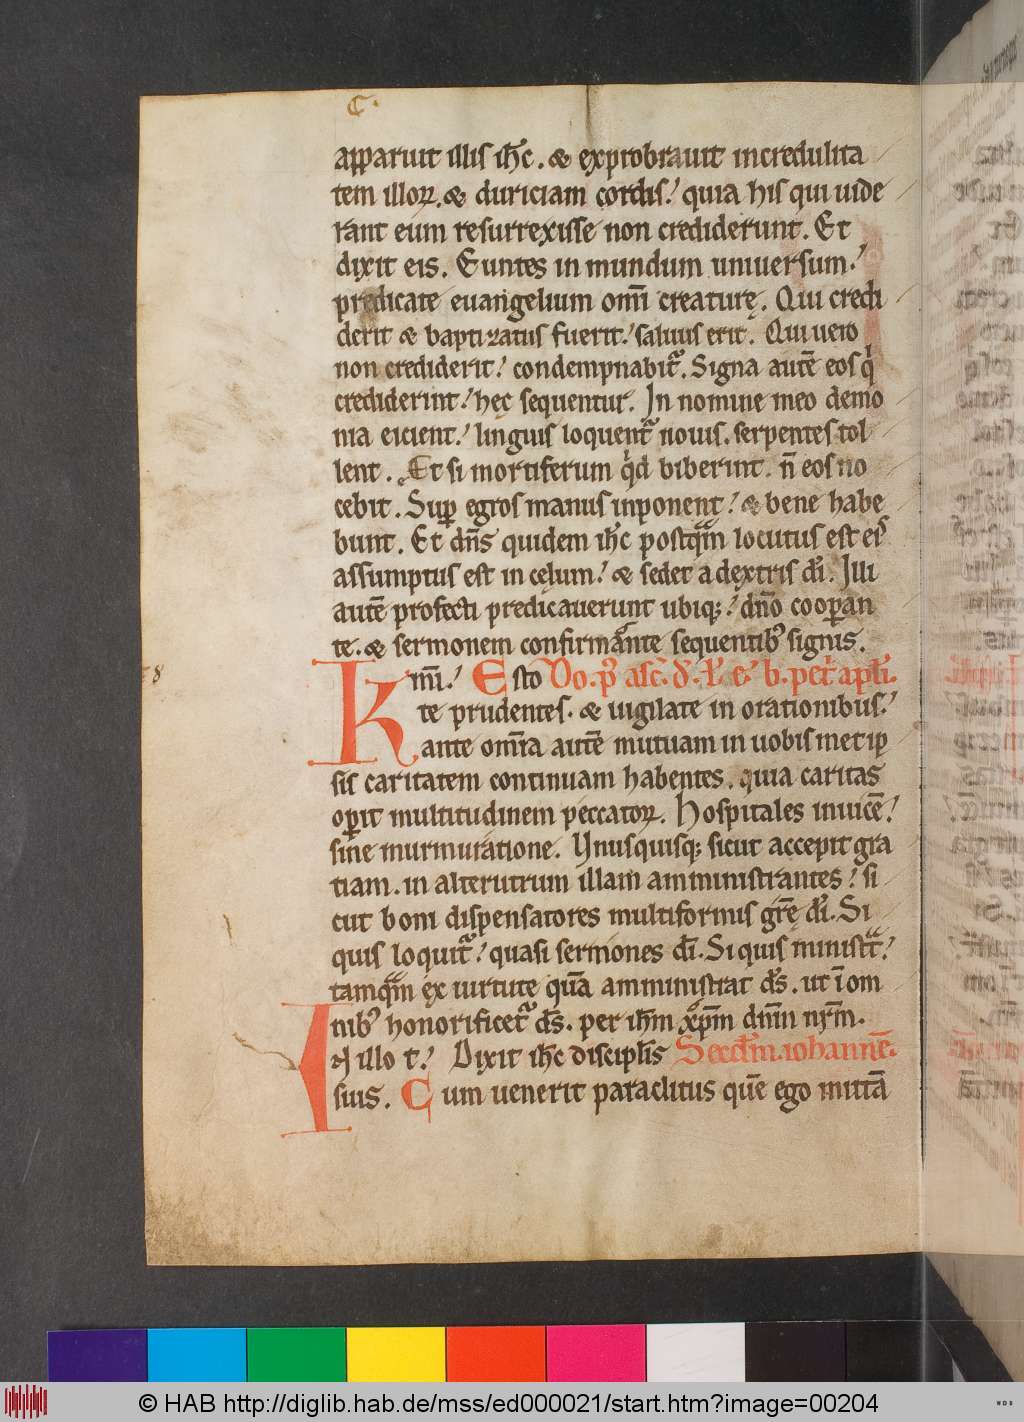 C.
apparuit illis ih̅c. & exprobrauit incredulita
tem illoꝝ. & duriciam cordis.' quia his qui uide
rant eum resurrexisse non crediderunt. Et
dixit eis. Euntes in mundum uniuersum.'
predicate euangelium omi̅ creaturę. Qui credi
derit & baptizatus fuerit.' saluus erit. Qui uero
non crediderit.' condempnabit᷑. Signa aute̅ eos qͥ
crediderint.' hec sequentur. In nomine meo demo
nia eicient.' linguis loquent᷑ nouis. serpentes tol
lent. Et si mortiferum qͥd biberint. n̅ eos no
cebit. Suꝑ egros manus inponent.' & bene habe
bunt. Et dn̅s quidem ih̅c postqᷓm locutus est eis
assumptus est in cęlum.' & sedet a dextris di̅. Illi
aute̅ profecti predicauerunt ubiq;.' dn̅o cooꝑan
te. & sermonem confirmante sequentibꝰ signis.
K mi̅.' Esto Do. p᷒ asc̅. d̅. l̅. e̅. b. pet̅ apl̅i.
te prudentes. & uigilate in orationibus.'
ante omi̅a aute̅ mutuam in uobismet ip
sis caritatem continuam habentes. quia caritas
oꝑit multitudinem peccatoꝝ. Hospitales inuice̅.'
sine murmuratione. Unusquisq; sicut accepit gra
tiam. in alterutrum illam amministrantes.' si
cut boni dispensatores multiformis gr̅ę di̅. Si
quis loquit᷑.' quasi sermones di̅. Si quis ministᷓt.'
tamqᷓm ex uirtute qua̅ amministrat ds̅. ut i̅ om
nibꝰ honorificet᷑ ds̅. per ih̅m xp̅m dn̅m nr̅m.
IN illo t̅.' Dixit ih̅c discipl̅is Secd̅m. iohanne̅.
suis. Cum uenerit paraclitus que̅ ego mitta̅
© HAB http://diglib.hab.de/mss/ed000021/start.htm?image=00204